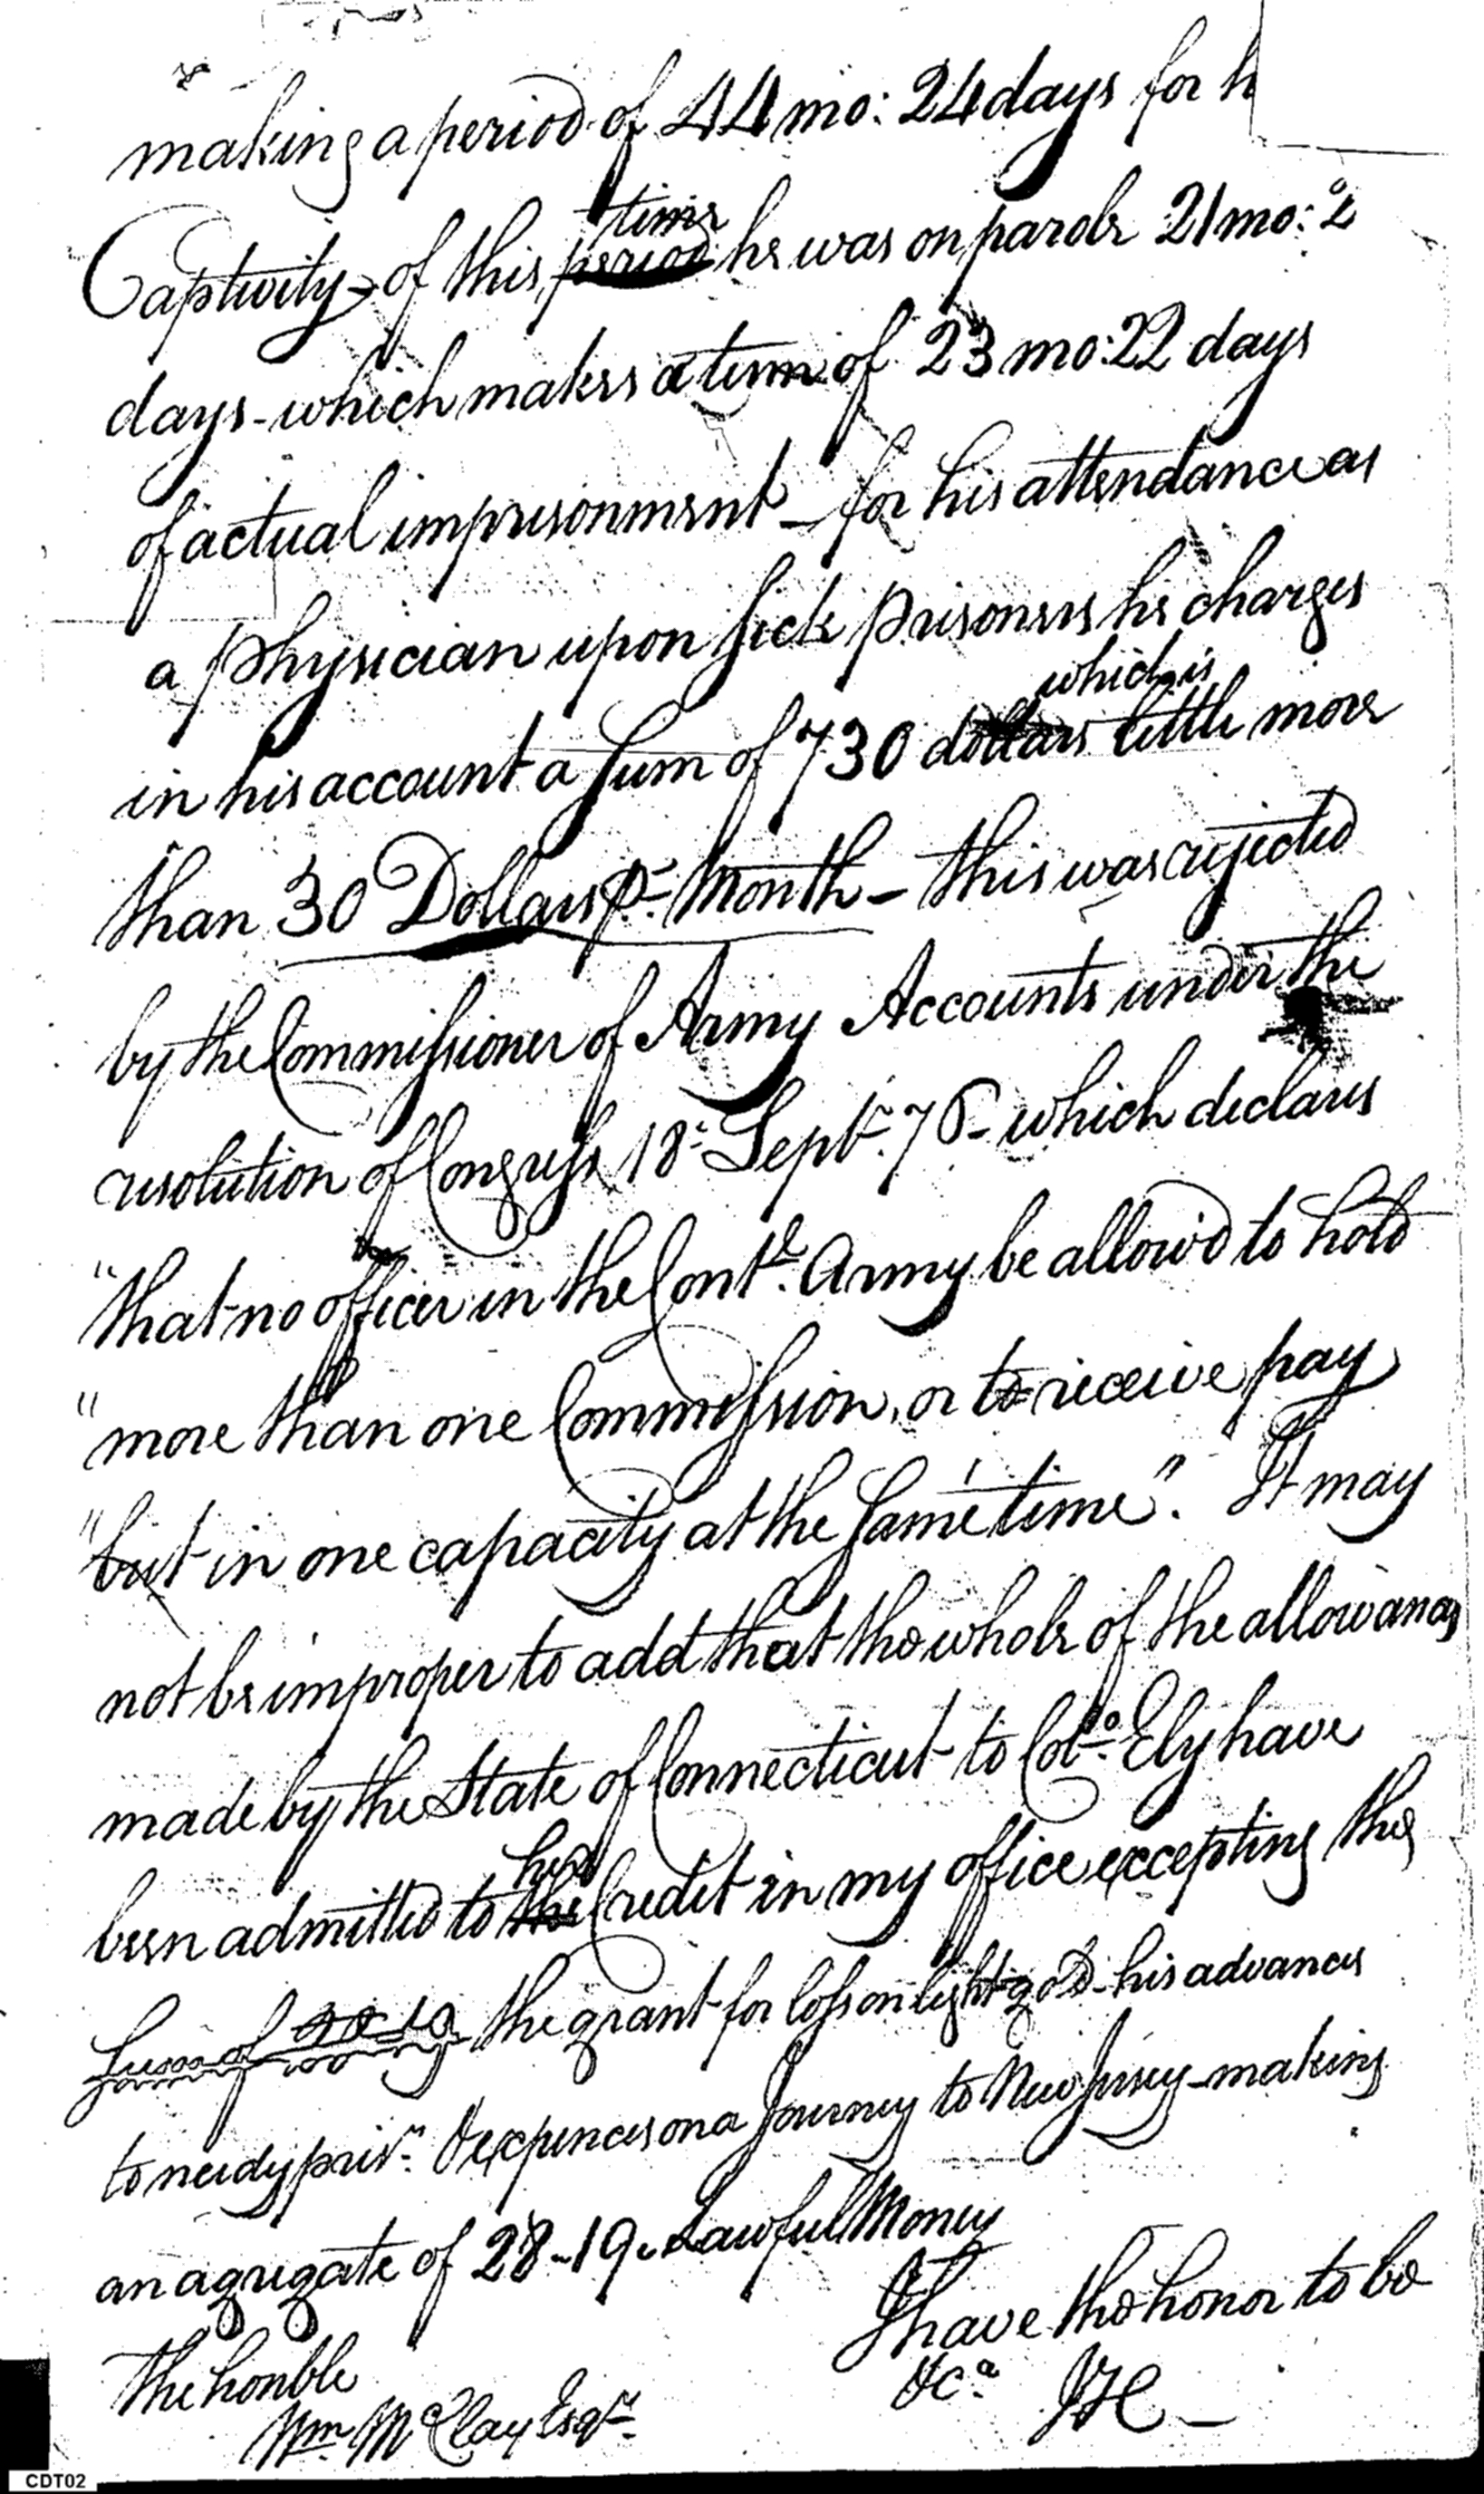 making a period of 44 mo: 24 days for h
Captivity - of this period time he was on parole 21 mo: 2
days - which makes a term of 23 mo: 22 days
of actual imprisonment - for his attendance as
a physician upon sick prisoners he charges
in his account a sum of 730 dollars which is little more
than 30 Dollars pr. Month - this was rejected
by the Commissioner of Army Accounts under the
resolution of Congress 18: Septr. 76 - which declares
"that no officer in the Contl. Army be allow'd to hold
"more than one Commission, or to receive pay
"but in one capacity at the same time". It may
not be improper to add that the whole of the allowances
made by the State of Connecticut to Colo. Ely have
been admitted to the her Credit in my office excepting the
sum of the grant for loss on light gold - his advances
to needy prisrs. & expences on a Journey to New Jersey - making
an agregate of 28-19. Lawful Money
I have the honor to be
&ca. JH -
The honble
Wm. McClay Esqr.
CDT02